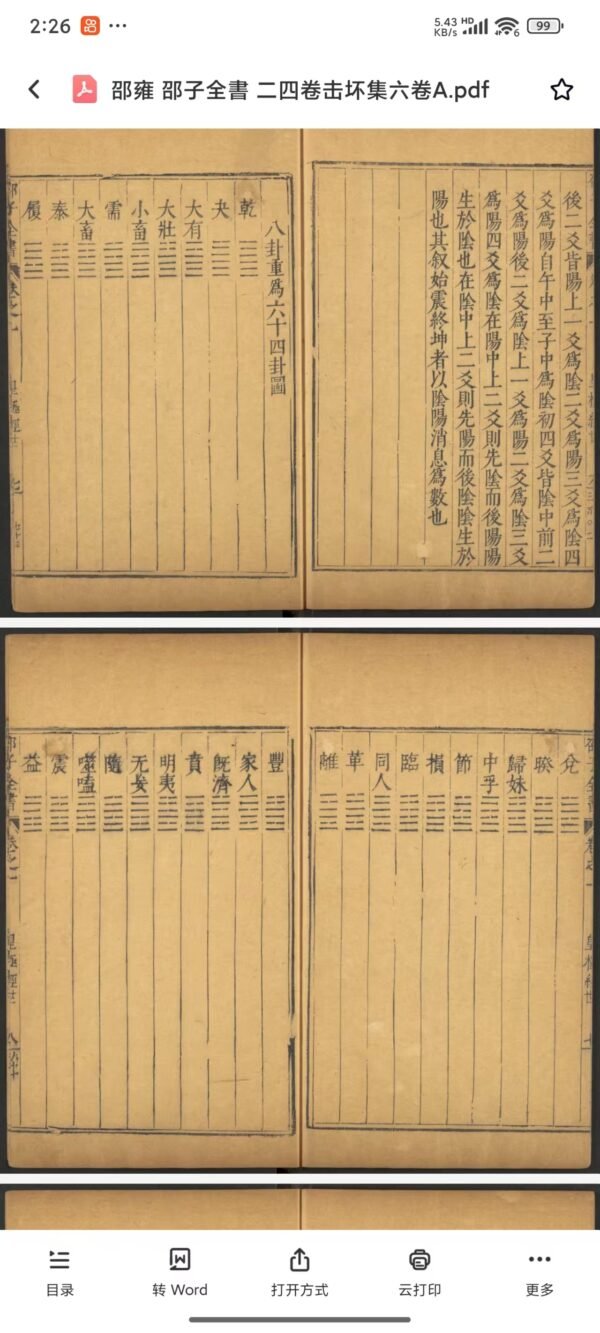 2:26
5.43 KB/s
HD
6
99
邵雍 邵子全書 二四卷击坏集六卷A.pdf
後二爻皆陽上一爻爲陰二爻爲陽三爻爲陰四
爻爲陽自午中至子中爲陰初四爻皆陰中前二
爻爲陽後二爻爲陰上一爻爲陽二爻爲陰三爻
爲陽四爻爲陰在陽中上二爻則先陰而後陽陽
生於陰也在陰中上二爻則先陽而後陰陰生於
陽也其叙始震終坤者以陰陽消息爲數也
八卦重爲六十四卦圖
乾
夬
大有
大壯
小畜
需
大畜
泰
履
邵子全書 卷之一 皇極經世 七
兌
睽
歸妹
中孚
節
損
臨
同人
革
離
豐
家人
旣濟
賁
明夷
无妄
隨
噬嗑
震
益
邵子全書 卷之一 皇極經世 八
目录
转 Word
打开方式
云打印
更多